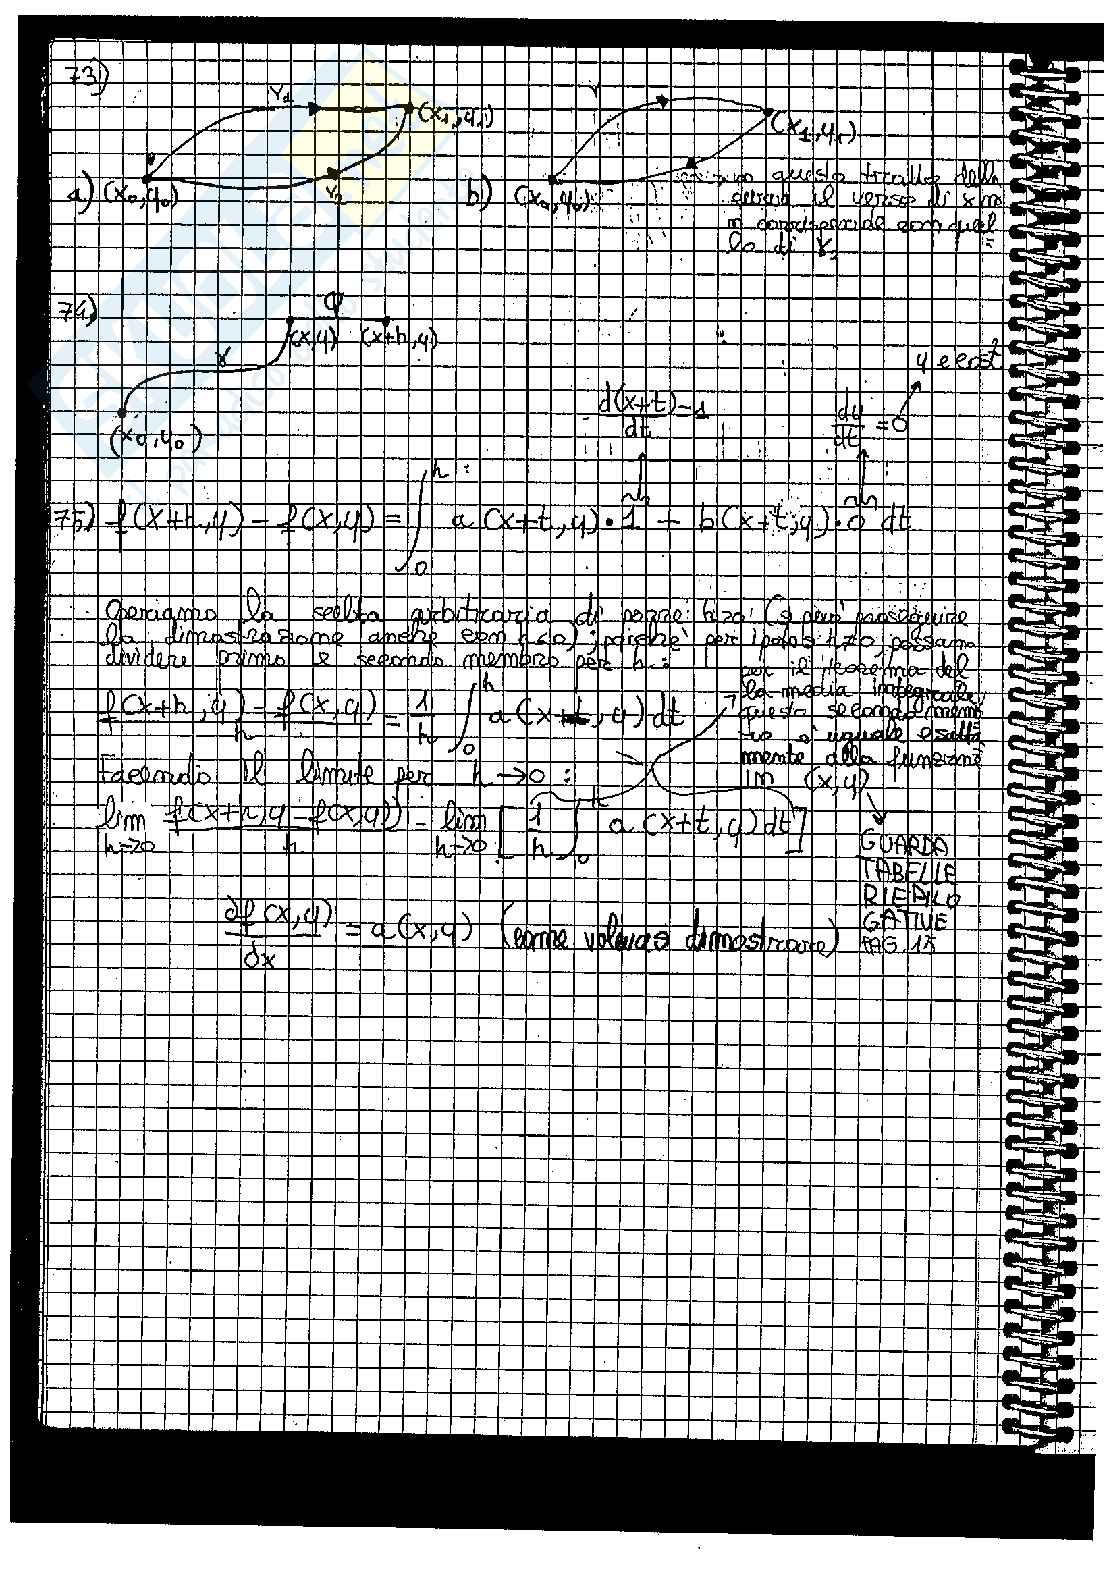 73)
γ1
(x1,y1)
γ
(x1,y1)
a) (x0,y0)
γ2
b) (x0,y0)
in questo tratto della
curva il verso di γ non
corrisponde con quel
lo di γ2
74)
φ
(x,y) (x+h,y)
γ
(x0,y0)
y è cost
d(x+t)/dt = 1
dy/dt = 0
75) f(x+h,y) - f(x,y) = ∫₀ʰ a(x+t,y)·1 + b(x+t,y)·0 dt
Operiamo la scelta arbitraria di porre h>0 (si può proseguire
la dimostrazione anche con h<0); poiché per h>0, possiamo
dividere primo e secondo membro per h:
f(x+h,y) - f(x,y) / h = 1/h ∫₀ʰ a(x+t,y) dt
per il teorema del
la media integrale,
questo secondo mem
bro è uguale esatta
mente alla funzione
in (x,y)
Facendo il limite per h→0:
lim h→0 f(x+h,y) - f(x,y) / h = lim h→0 [1/h ∫₀ʰ a(x+t,y) dt]
GUARDA
TABELLE
RIEPILO
GATIVE
PAG.15
∂f(x,y)/∂x = a(x,y) (come volevasi dimostrare)